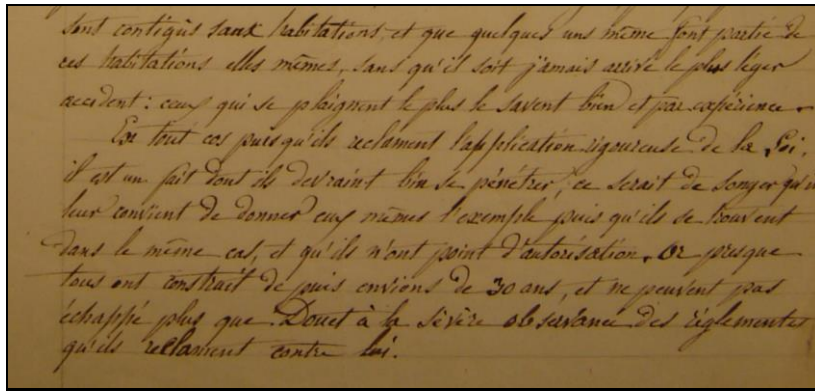 sont contigüs saux habitations, et que quelques uns même font partie de
ces habitations elles mêmes, sans qu'il soit jamais arrivé le plus léger
accident : ceux qui se plaignent le plus le savent bien et par expérience.
En tout cas puisqu'ils reclament l'application rigoureuse de la Loi,
il est un fait dont ils devraint bien se pénétrer, ce serait de songer qu'il
leur convient de donner eux mêmes l'exemple puis qu'ils se trouvent
dans le même cas, et qu'ils n'ont point d'autorisation. Or presque
tous ont construit de puis envions de 30 ans, et ne peuvent pas
échappé plus que Douet à la sévère observance des réglementes
qu'ils reclament contre lui.